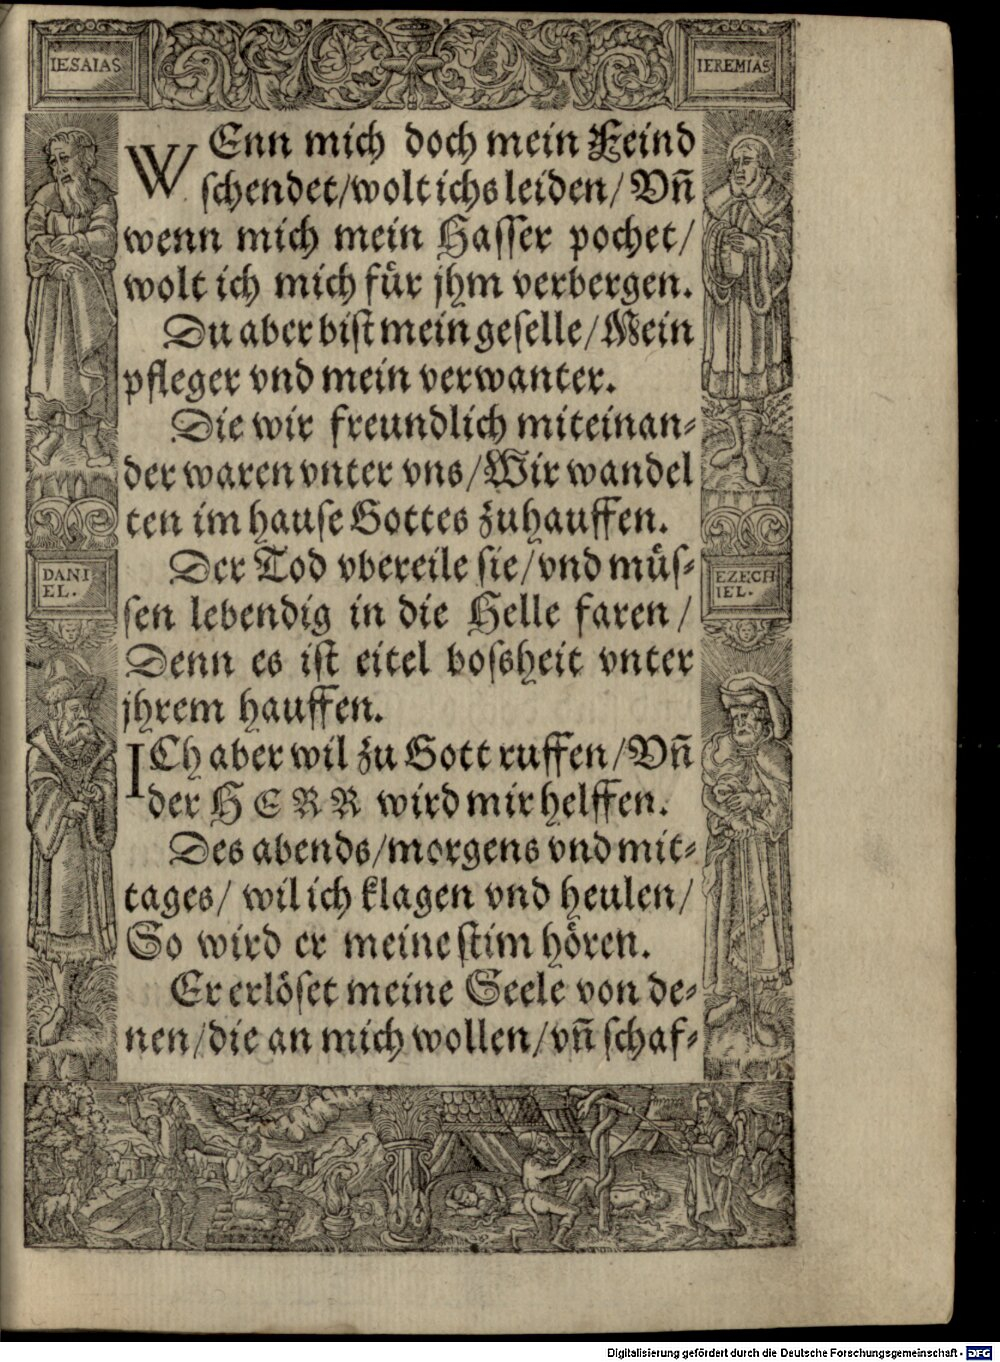 IESAIAS
IEREMIAS
WEnn mich doch mein Feind
schendet/wolt ichs leiden/ Vñ
wenn mich mein Hasser pochet/
wolt ich mich für jhm verbergen.
Du aber bist mein geselle/Mein
pfleger vnd mein verwanter.
Die wir freundlich miteinan⸗
der waren vnter vns/Wir wandel
ten im hause Gottes zuhauffen.
Der Tod vbereile sie/vnd müs⸗
sen lebendig in die Helle faren/
Denn es ist eitel bossheit vnter
jhrem hauffen.
ICh aber wil zu Gott ruffen/Vñ
der HERR wird mir helffen.
Des abends/morgens vnd mit⸗
tages/ wil ich klagen vnd heulen/
So wird er meine stim hören.
Er erlöset meine Seele von de⸗
nen/die an mich wollen/vñ schaf⸗
DANI
EL.
EZECH
IEL.
Digitalisierung gefördert durch die Deutsche Forschungsgemeinschaft - DFG